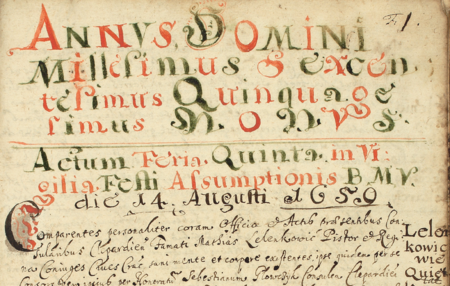 ANNVS DOMINI 1.
Millesimus Sexcen
tesimus Quinquage
simus NONVS.
Actum Feria Quinta in Vi
gilia Festi Assumptionis B. M. V.
die 14 Augusti 1659
Comparentes personaliter coram Officio et Actis præsentibus Con
sularibus Clepardien Famati Mathias Zelenkowic Pistor et Regi
na Coniuges Cives sani mente et corpore existentes, ipse quidem per se
Sebestianum Consulem Clepardien
Lelen
kowic
wie
Quiet